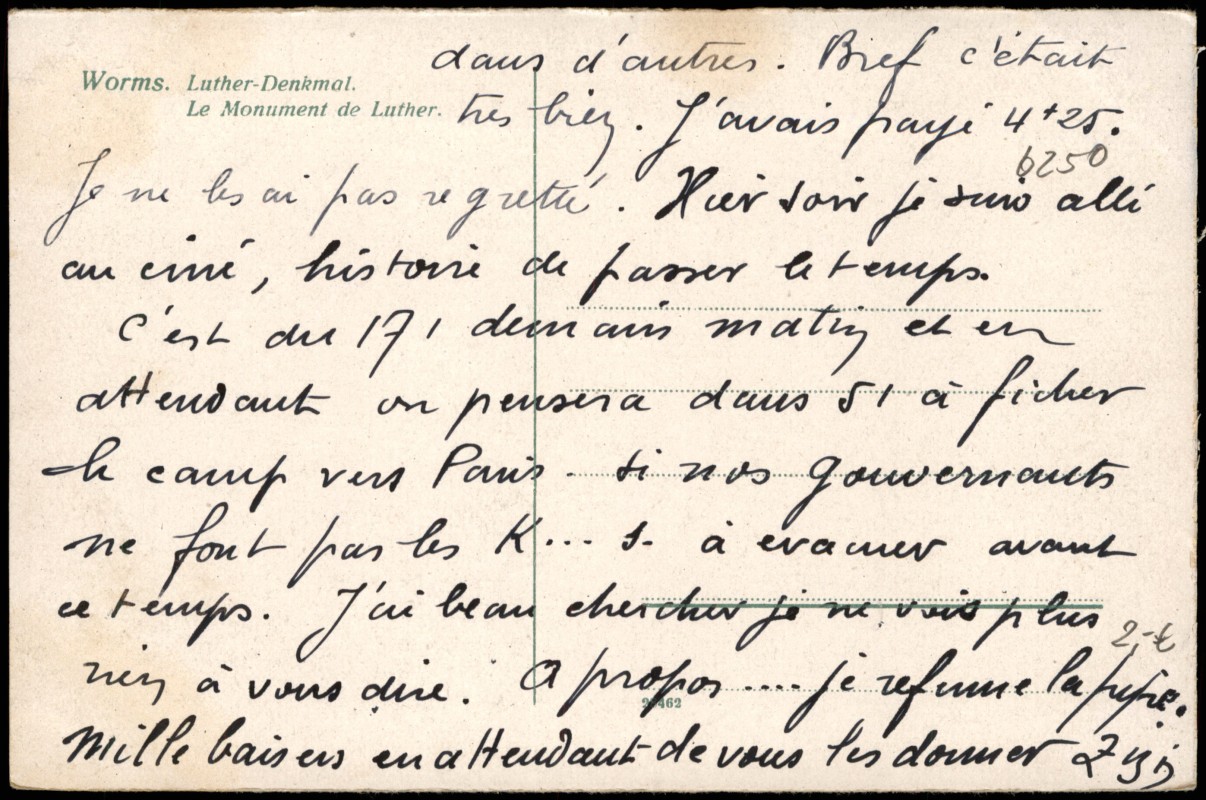 Worms. Luther-Denkmal.
Le Monument de Luther.
dans d'autres. Bref c'était
tres bien. J'avais payé 4+25.
6250
Je ne les ai pas regretté. Hier soir je suis allé
au ciné, histoire de passer le temps.
C'est du 171 demain matin et en
attendant on pensera dans 51 à ficher
le camp vers Paris. si nos gouvernants
ne font pas les K... s. à evacuer avant
ce temps. J'ai beau chercher je ne vois plus
2,-€
rien à vous dire. A propos .... je refume la pipe.
462
Mille baisers en attendant de vous les donner